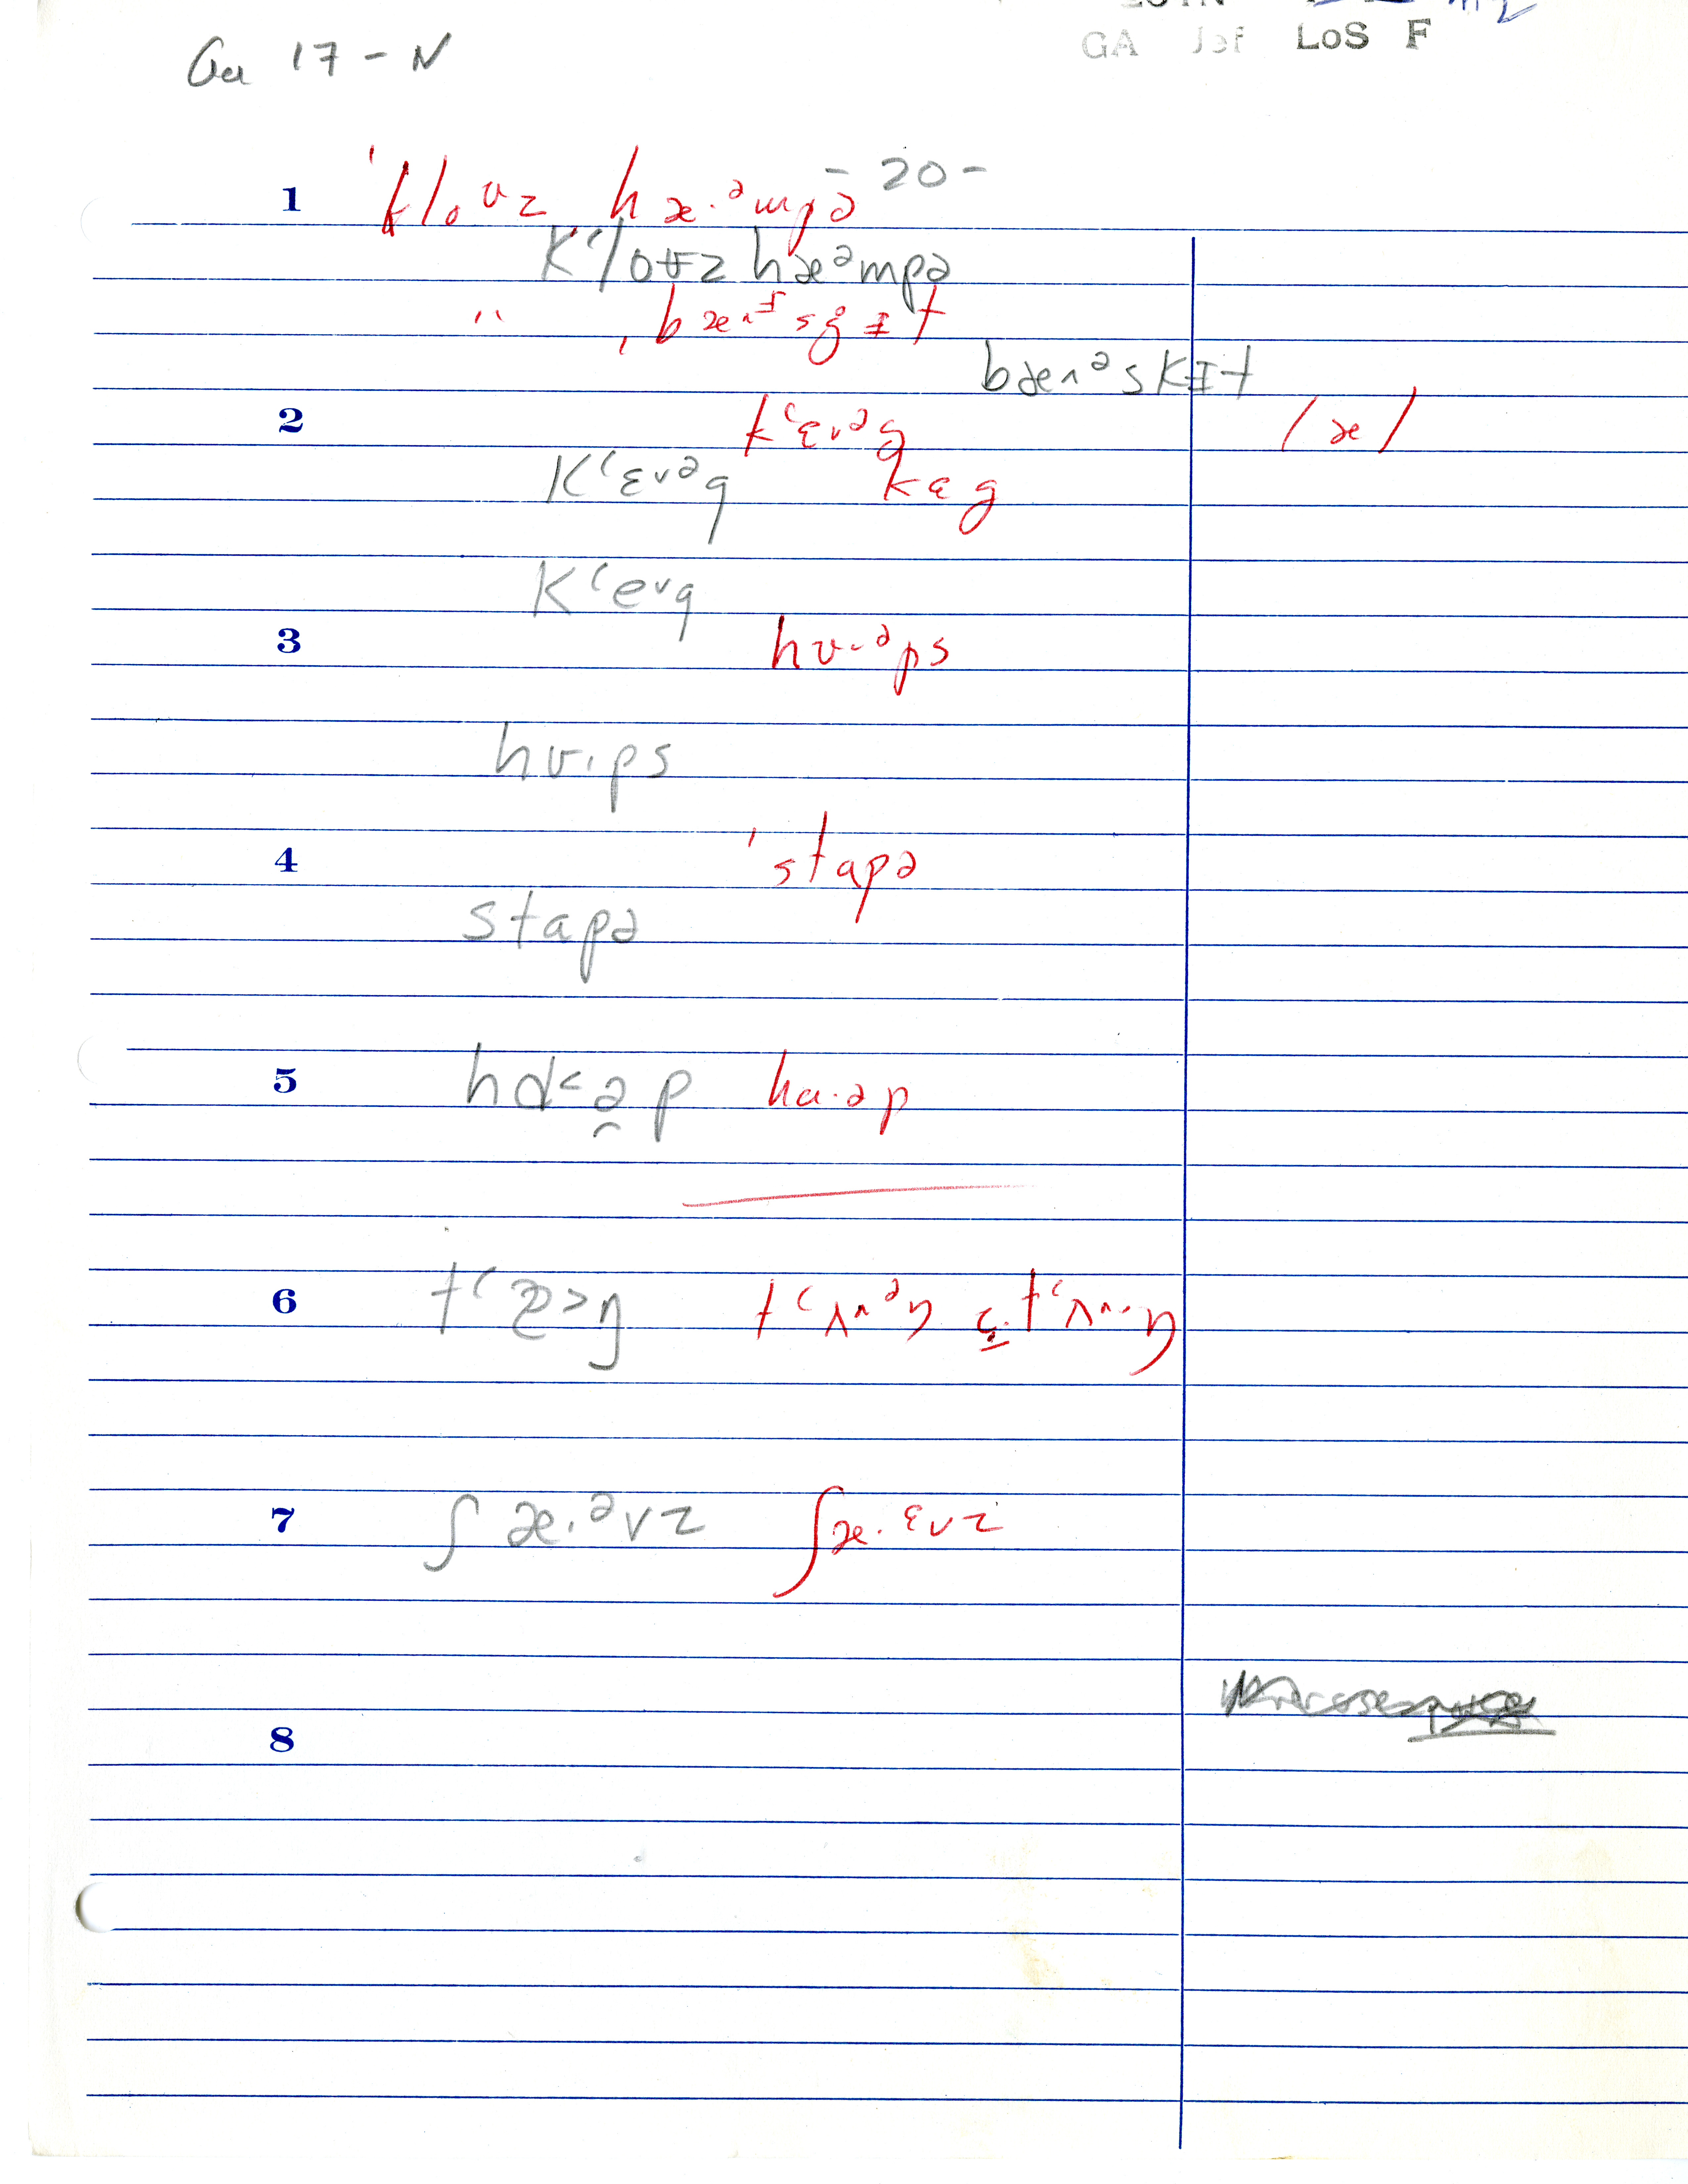 Ga 17 - N
GA Jef LoS F
- 20 -
1 ˈkloʊz hæ·ᵊmpə
Kʻloʊz hæᵊmpə
" ˌbæ^ɪsgɪt
bæ^ᵊskɪt
2 kʻɛvᵊg /æ/
Kʻɛvᵊg kɛg
Kʻevg
3 hʊ·ᵊps
hʊ·ps
4 ˈstapə
stapə
5 hɑ<ə̯p hɑ·əp
6
7 ʃæ·ᵊvz ʃæ·ᵋvz
8